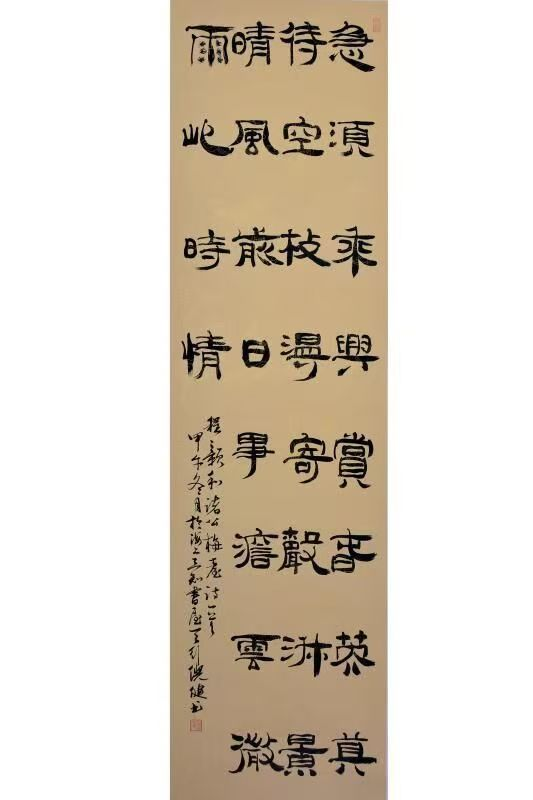 急須乘興賞春英莫
待空枝漫寄聲淑景
晴風前日事澹雲微
雨此時情
程顥和諸公梅臺詩一首
甲午冬月於海上知書屋書